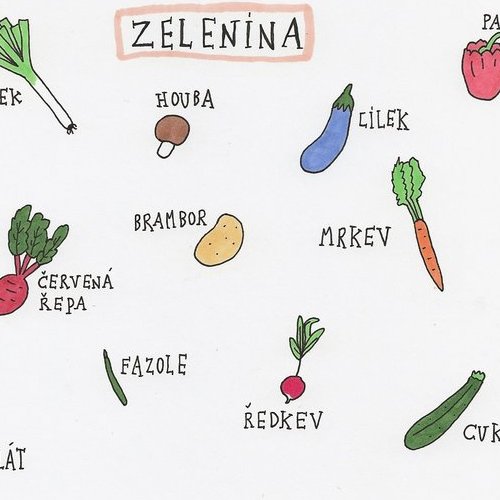 ZELENÍNA
PA
EK
HOUBA
LILEK
BRAMBOR
MRKEV
ČERVENÁ
ŘEPA
FAZOLE
ŘEDKEV
CUK
LÁT